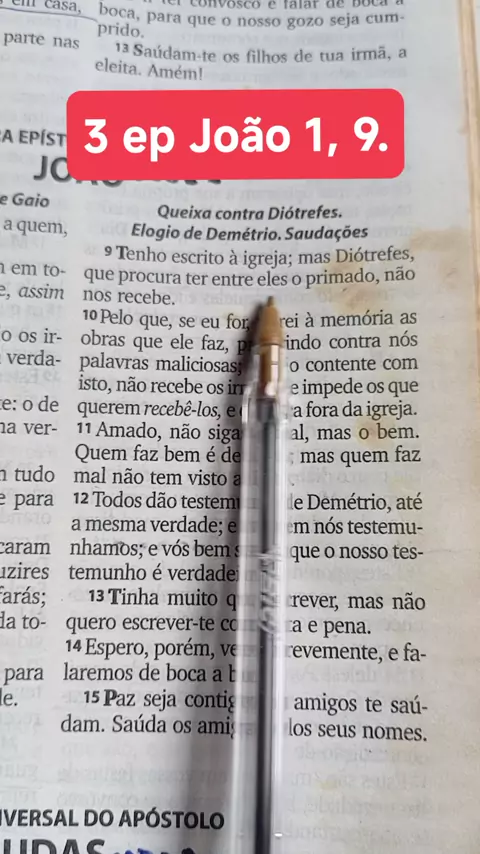 em casa,
parte nas
convosco e falar de boca a
boca, para que o nosso gozo seja cum-
prido.
13 Saúdam-te os filhos de tua irmã, a
eleita. Amém!
3 ep João 1, 9.
A EPÍST
e Gaio
a quem,
m em to-
e, assim
o os ir-
verda-
te: o de
na ver-
m tudo
e para
caram
uzires
farás;
da to-
para
le.
Queixa contra Diótrefes.
Elogio de Demétrio. Saudações
9 Tenho escrito à igreja; mas Diótrefes,
que procura ter entre eles o primado, não
nos recebe.
10 Pelo que, se eu for, rei à memória as
obras que ele faz, p indo contra nós
palavras maliciosas; o contente com
isto, não recebe os ir e impede os que
querem recebê-los, e a fora da igreja.
11 Amado, não siga al, mas o bem.
Quem faz bem é de ; mas quem faz
mal não tem visto a
12 Todos dão testem de Demétrio, até
a mesma verdade; e em nós testemu-
nhamos; e vós bem s que o nosso tes-
temunho é verdade
13 Tinha muito q crever, mas não
quero escrever-te co ta e pena.
14 Espero, porém, ve revemente, e fa-
laremos de boca a b
15 Paz seja contig amigos te saú-
dam. Saúda os ami los seus nomes.
IVERSAL DO APÓSTOLO
UDAS